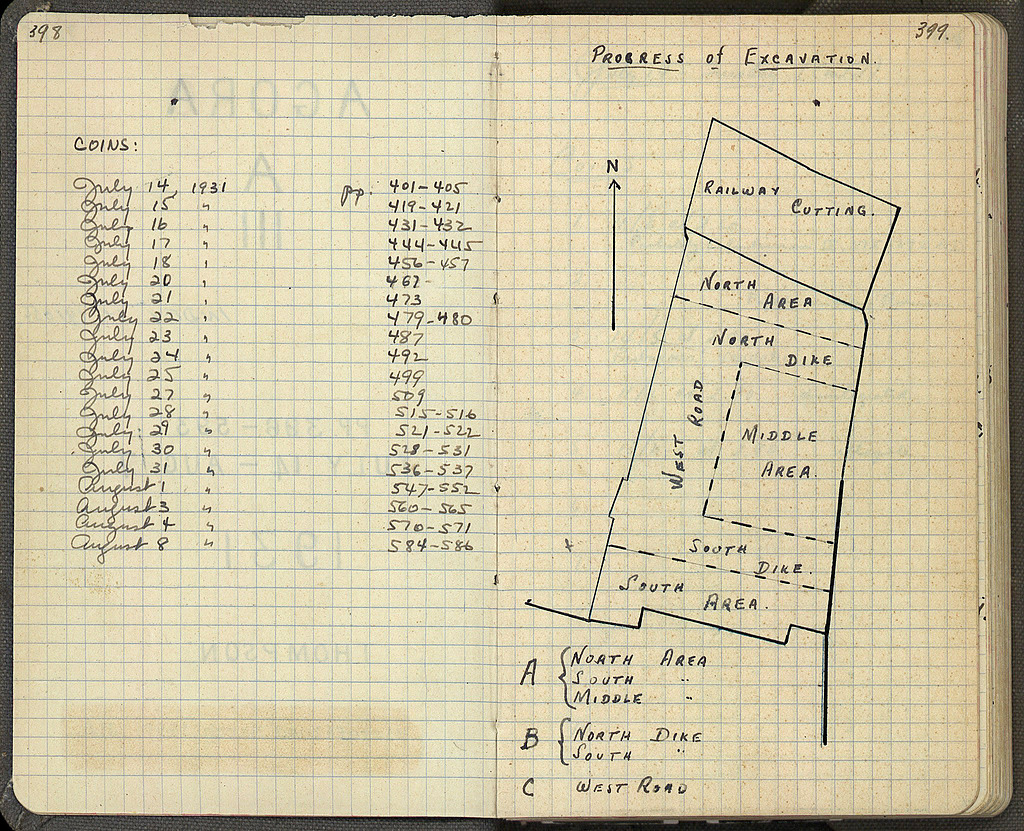 398
COINS:
July 14, 1931 pp. 401-405
July 15 " 419-421
July 16 " 431-432
July 17 " 444-445
July 18 " 456-457
July 20 " 462
July 21 " 473
July 22 " 479-480
July 23 " 487
July 24 " 492
July 25 " 499
July 27 " 509
July 28 " 515-516
July 29 " 521-522
July 30 " 528-531
July 31 " 536-537
August 1 " 547-552
August 3 " 560-565
August 4 " 570-571
August 8 " 584-586
399.
PROGRESS of EXCAVATION.
N
RAILWAY
CUTTING.
NORTH
AREA
NORTH
DIKE
WEST ROAD
MIDDLE
AREA.
SOUTH
DIKE.
SOUTH
AREA.
A { NORTH AREA
SOUTH "
MIDDLE "
B { NORTH DIKE
SOUTH "
C WEST ROAD